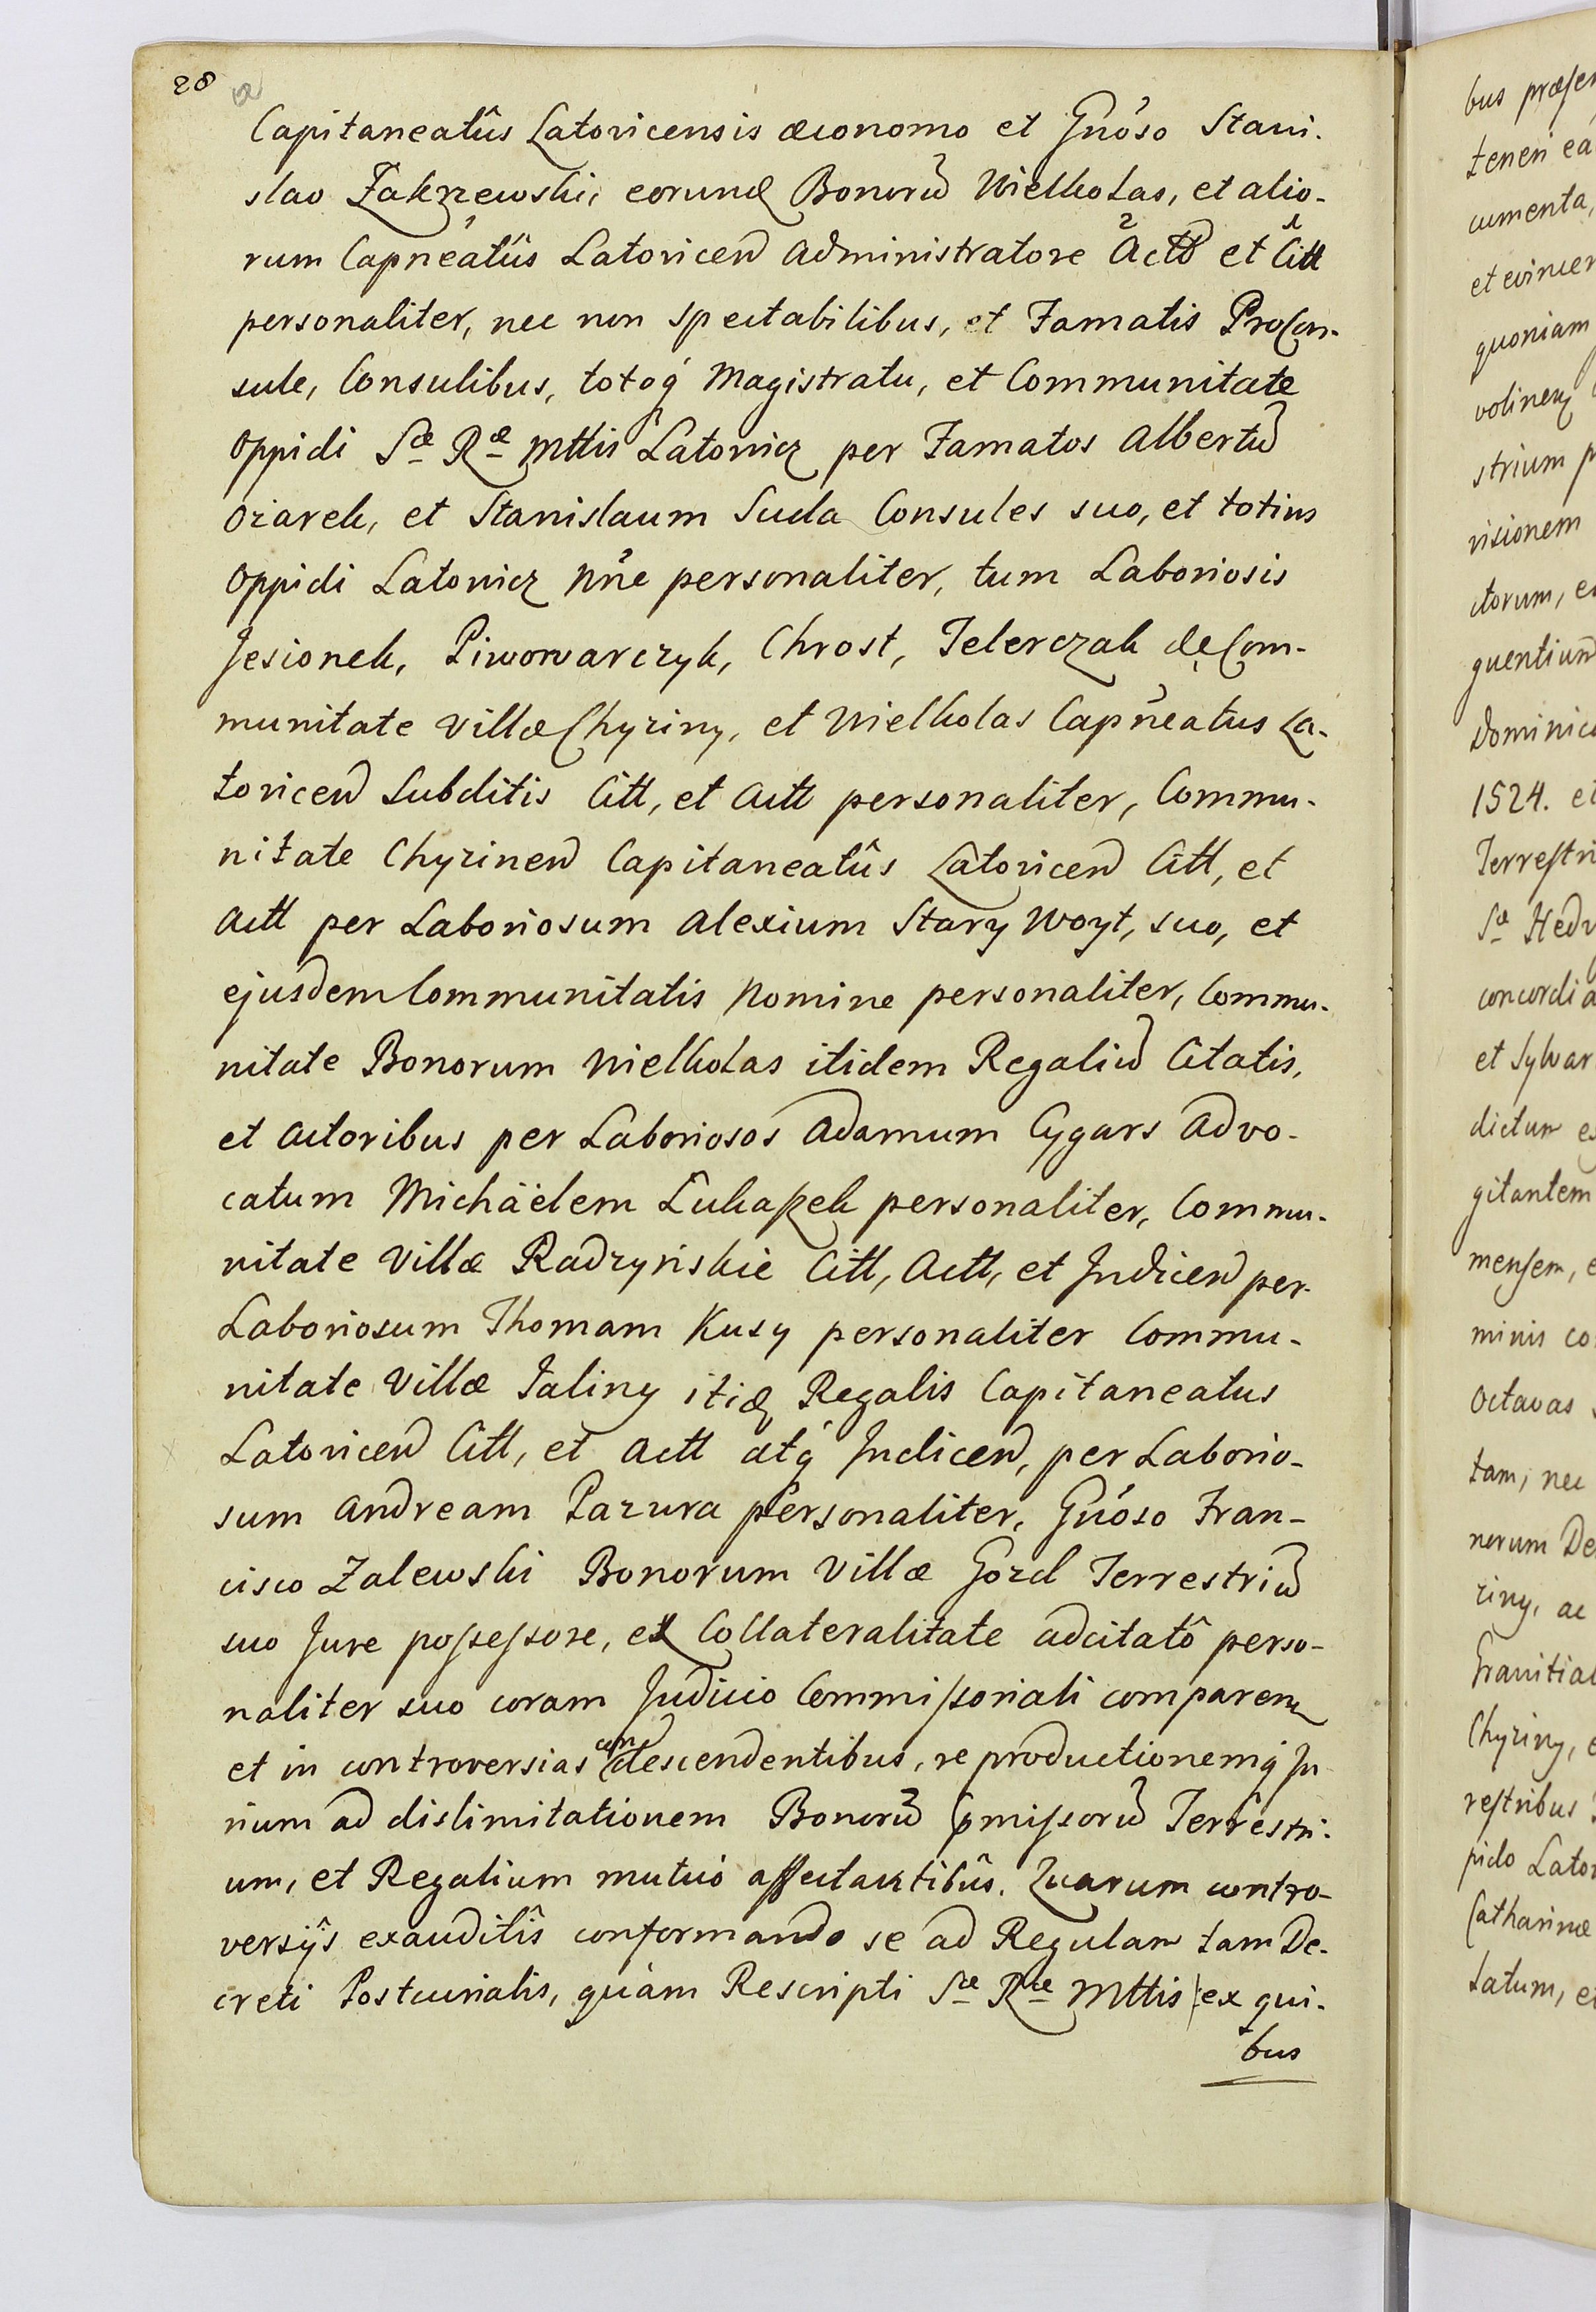 28
Capitaneatûs Latovicensis œconomo et Gnóso Stani-
slao Zakrzewski, eorundq Bonorũ Wielkolas, et alio-
rum Capneátûs Latovicen Administratore Actt et Citt
personaliter, nec non spectabilibus, et Famatis Procon-
sule, Consulibus, totoq́ Magistratu, et Communitate
Oppidi Sæ Ræ Mttis Latovicz per Famatos Albertũ
Oziarek, et Stanislaum Suda Consules suo, et totius
Oppidi Latovicz Nńe personaliter, tum Laboriosis
Jesionek, Piworwarczyk, Chrost, Telerczak de Com-
munitate villæ Chyziny, et Wielkolas Capńeatus La-
tovicen Subditis Citt, et Actt personaliter, Commu-
nitate Chyzinen Capitaneatûs Latovicen Citt, et
Actt per Laboriosum Alexium Stary Woyt, suo, et
ejusdem Communitatis Nomine personaliter, Commu-
nitate Bonorum Wielkolas itidem Regaliũ Citatis,
et Actoribus per Laboriosos Adamum Cygars Advo-
catum Michäelem Łukaßek personaliter, Commu-
nitate Villæ Radzyńskie Citt, Actt, et Indicen per
Laboriosum Thomam Kusy personaliter Commu-
nitate Villæ Jaliny itidq Regalis Capitaneatus
Latovicen Citt, et Actt atq́ Indicen, per Laborio-
sum Andream Pazura personaliter, Gnóso Fran-
cisco Zalewski Bonorum Villæ Gozd Terrestriũ
suo Jure possessore, ex Collateralitate adcitatô perso-
naliter suo coram Judicio Commissoriali comparen
et in controversias condescendentibus, reproductionemq́ Ju-
rium ad dislimitationem Bonorũ Pmissorũ Terrestri-
um, et Regalium mutuó affectantibûs. Quarum contro-
versijs exauditîs conformando se ad Regulam tam De-
creti Postcurialis, quàm Rescripti Sæ Ræ Mttis |: ex qui-
bus
bus
teneri ea
cumenta,
et evincen
quoniam
strium p
visionem
ctorum, e
Dominic
1524. et
Terrestri
Sæ Hedv
concordia
et Sylvar
dictum e
gitantem
mensem, e
minis co
Octavas
tam, nec
nerum De
ziny, ac
Granitial
Chyziny, e
restribus
pido Latov
Catharinæ
tatum, et